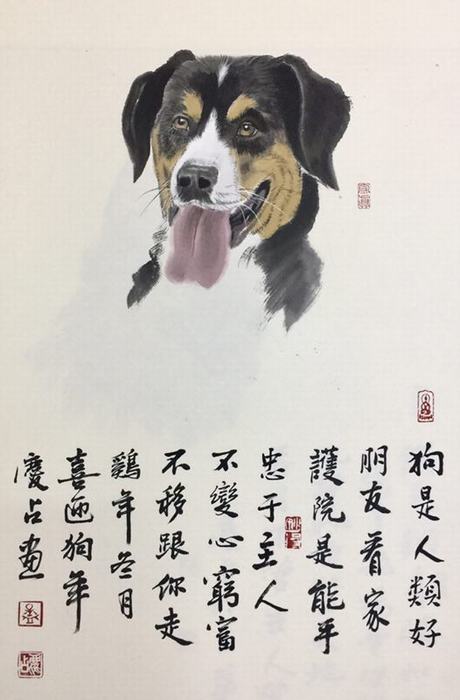 狗是人類好
朋友看家
護院是能手
忠于主人
不變心窮富
不移跟你走
鷄年冬月
喜迎狗年
慶占畫